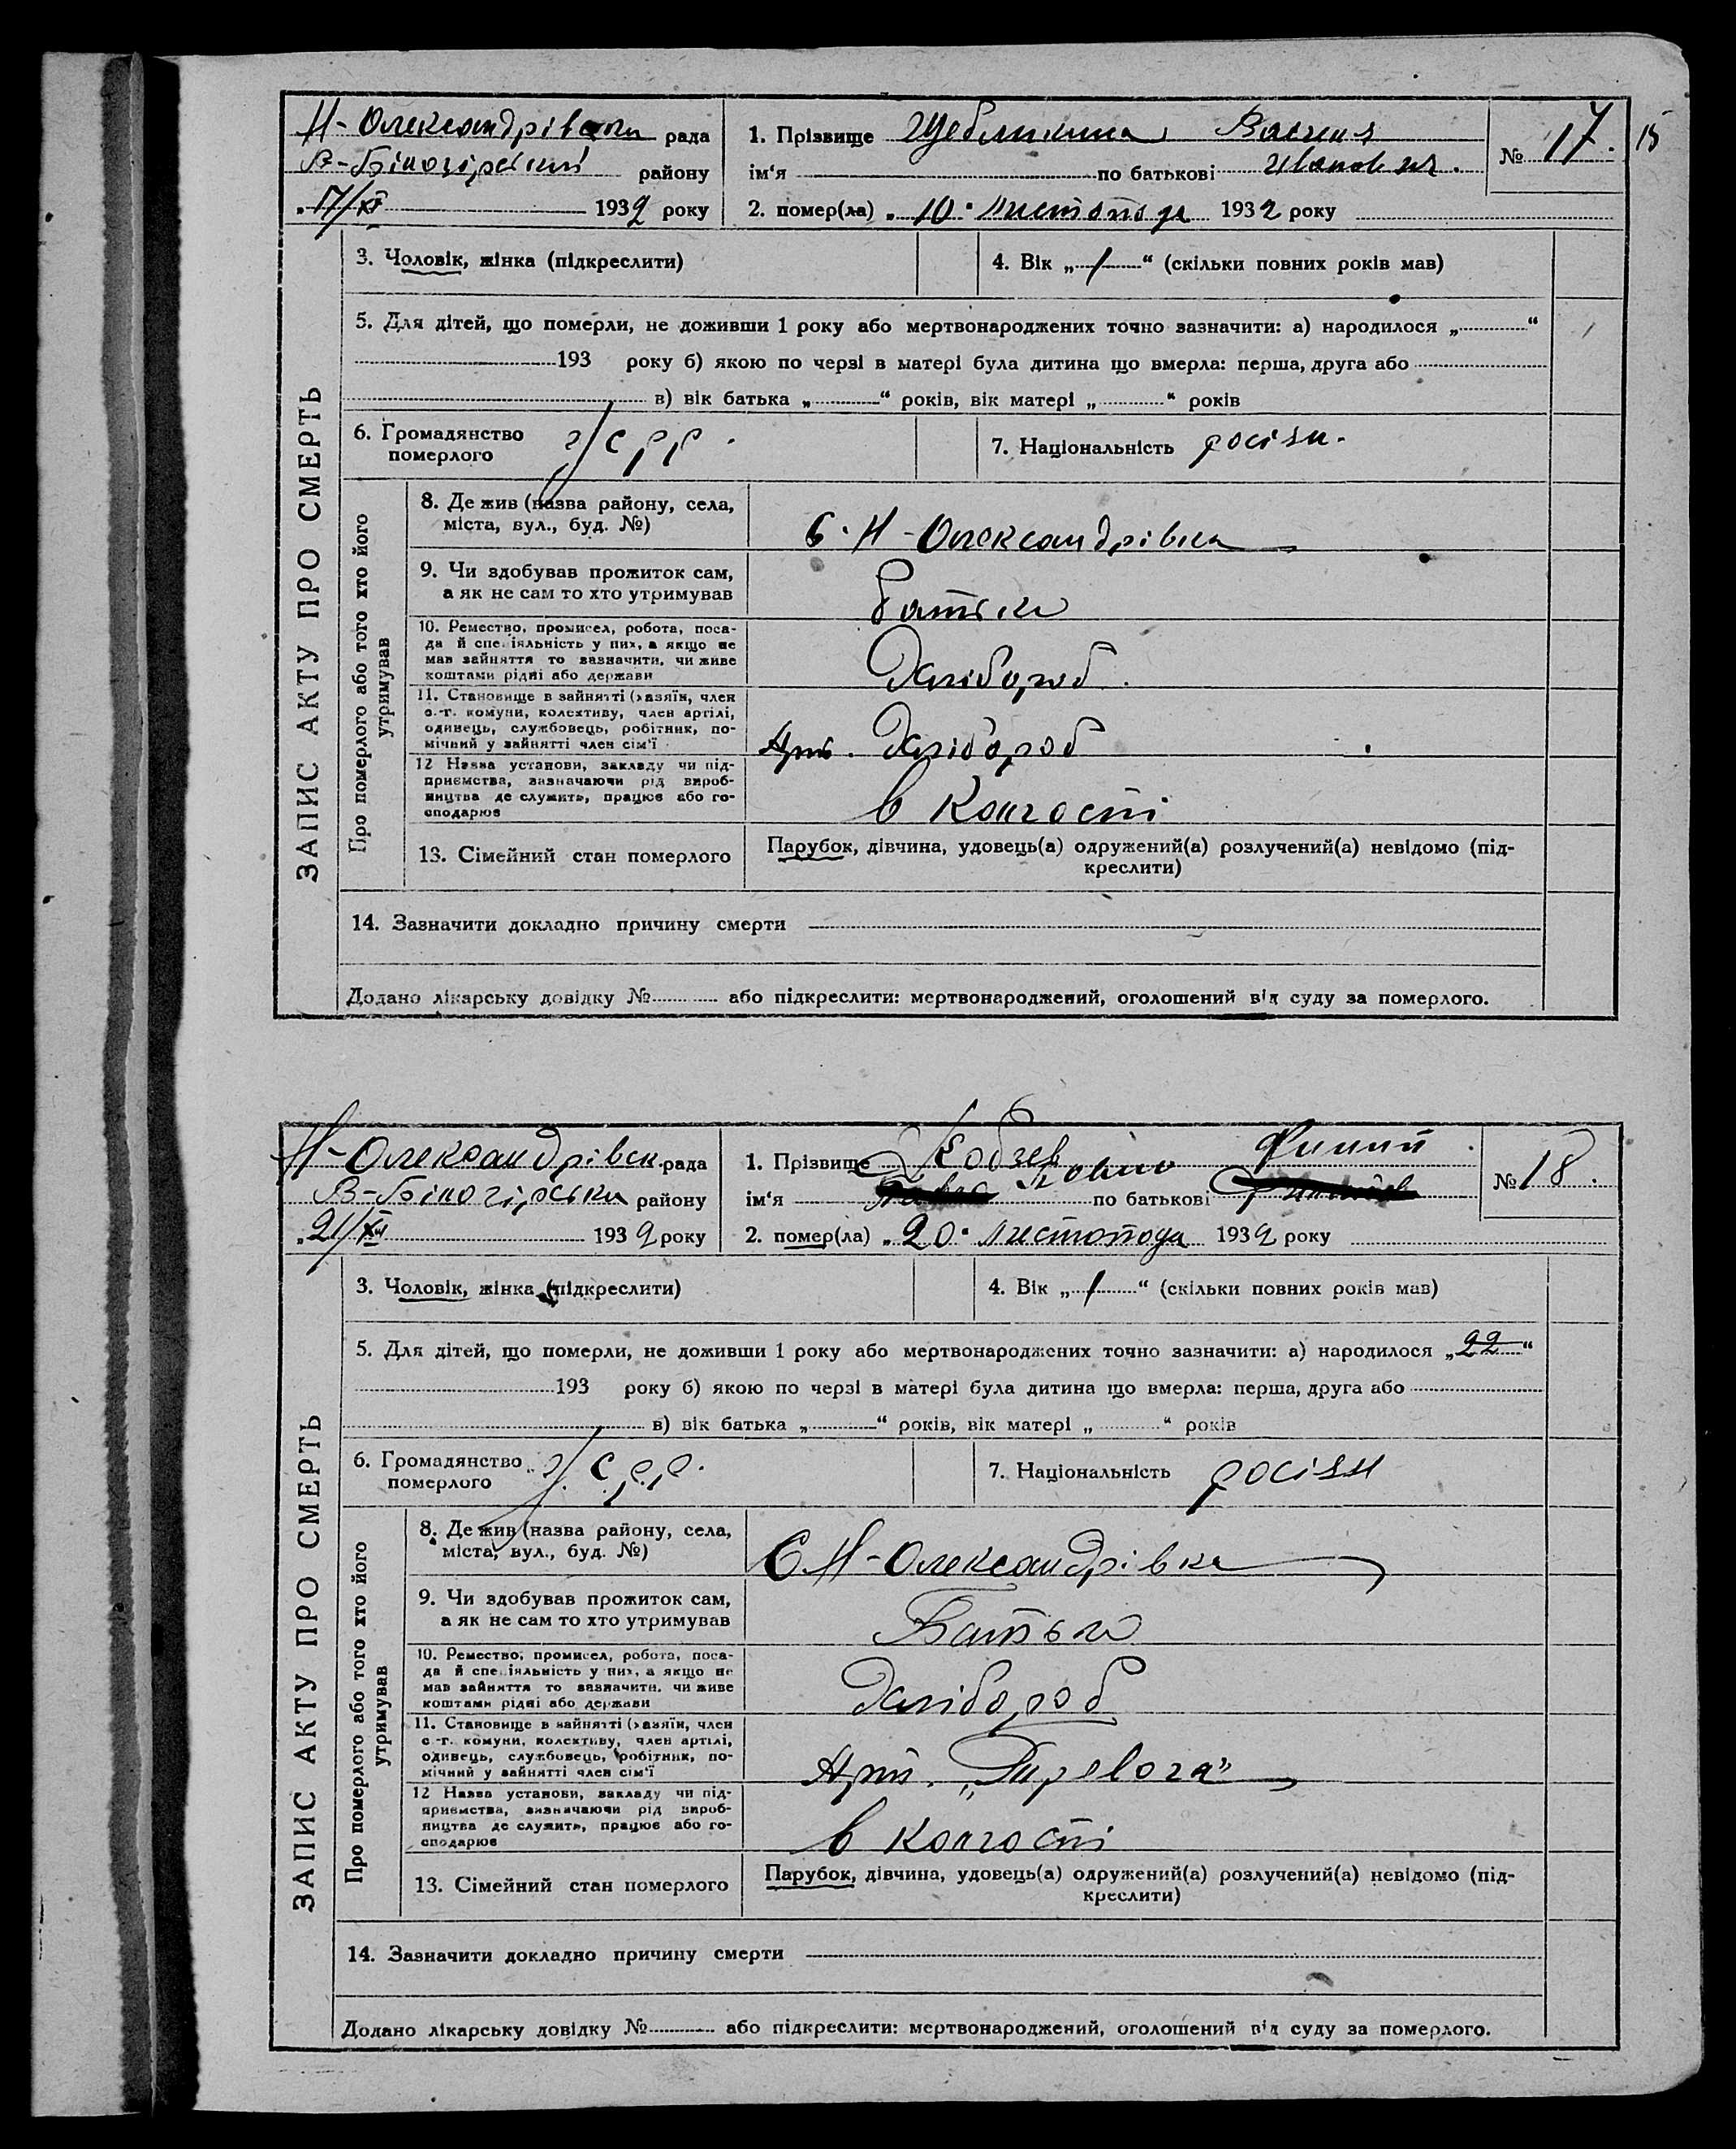 Н-Олександрівськи рада
В-Білозірський району
„17/XI 1932 року
1. Прізвище Щеблыкина Василя
ім'я по батькові Иванович.
2. помер(ла) „10" листопада 1932 року
№ 17.
15
ЗАПИС АКТУ ПРО СМЕРТЬ
3. Чоловік, жінка (підкреслити)
4. Вік „1" (скільки повних років мав)
5. Для дітей, що померли, не доживши 1 року або мертвонароджених точно зазначити: а) народилося „ "
193 року б) якою по черзі в матері була дитина що вмерла: перша, друга або
в) вік батька „ " років, вік матері „ " років
6. Громадянство померлого УСРР.
7. Національність росіян.
Про померлого або того хто його утримував
8. Де жив (назва району, села,
міста, вул., буд. №)
с. Н-Олександрівка
9. Чи здобував прожиток сам,
а як не сам то хто утримував
батько
10. Ремество, промисел, робота, поса-
да й спеціяльність у них, а якщо не
мав зайняття то зазначити, чи живе
коштами рідні або держави
Хлібороб.
11. Становище в зайнятті (хазяїн, член
с.-г. комуни, колективу, член артілі,
одинець, службовець, робітник, по-
мічний у зайнятті член сім'ї
Арт. Хлібороб
12 Назва установи, закладу чи під-
приємства, зазначаючи рід вироб-
ництва де служить, працює або го-
сподарює
в колгоспі
13. Сімейний стан померлого
Парубок, дівчина, удовець(а) одружений(а) розлучений(а) невідомо (під-
креслити)
14. Зазначити докладно причину смерти
Додано лікарську довідку № або підкреслити: мертвонароджений, оголошений від суду за померлого.
Н-Олександрівск. рада
В-Білогірськи району
„21/XI 1932 року
1. Прізвище Кобзев
ім'я по батькові
2. помер(ла) „20" листопада 1932 року
№ 18.
ЗАПИС АКТУ ПРО СМЕРТЬ
3. Чоловік, жінка (підкреслити)
4. Вік „1" (скільки повних років мав)
5. Для дітей, що померли, не доживши 1 року або мертвонароджених точно зазначити: а) народилося „22"
193 року б) якою по черзі в матері була дитина що вмерла: перша, друга або
в) вік батька „ " років, вік матері „ " років
6. Громадянство померлого У.С.Р.Р.
7. Національність росіян
Про померлого або того хто його утримував
8. Де жив (назва району, села,
міста, вул., буд. №)
С. Н-Олександрівка
9. Чи здобував прожиток сам,
а як не сам то хто утримував
Батько
10. Ремество, промисел, робота, поса-
да й спеціяльність у них, а якщо не
мав зайняття то зазначити, чи живе
коштами рідні або держави
Хлібороб
11. Становище в зайнятті (хазяїн, член
с.-г. комуни, колективу, член артілі,
одинець, службовець, робітник, по-
мічний у зайнятті член сім'ї
Арт.
12 Назва установи, закладу чи під-
приємства, зазначаючи рід вироб-
ництва де служить, працює або го-
сподарює
в колгоспі
13. Сімейний стан померлого
Парубок, дівчина, удовець(а) одружений(а) розлучений(а) невідомо (під-
креслити)
14. Зазначити докладно причину смерти
Додано лікарську довідку № або підкреслити: мертвонароджений, оголошений від суду за померлого.